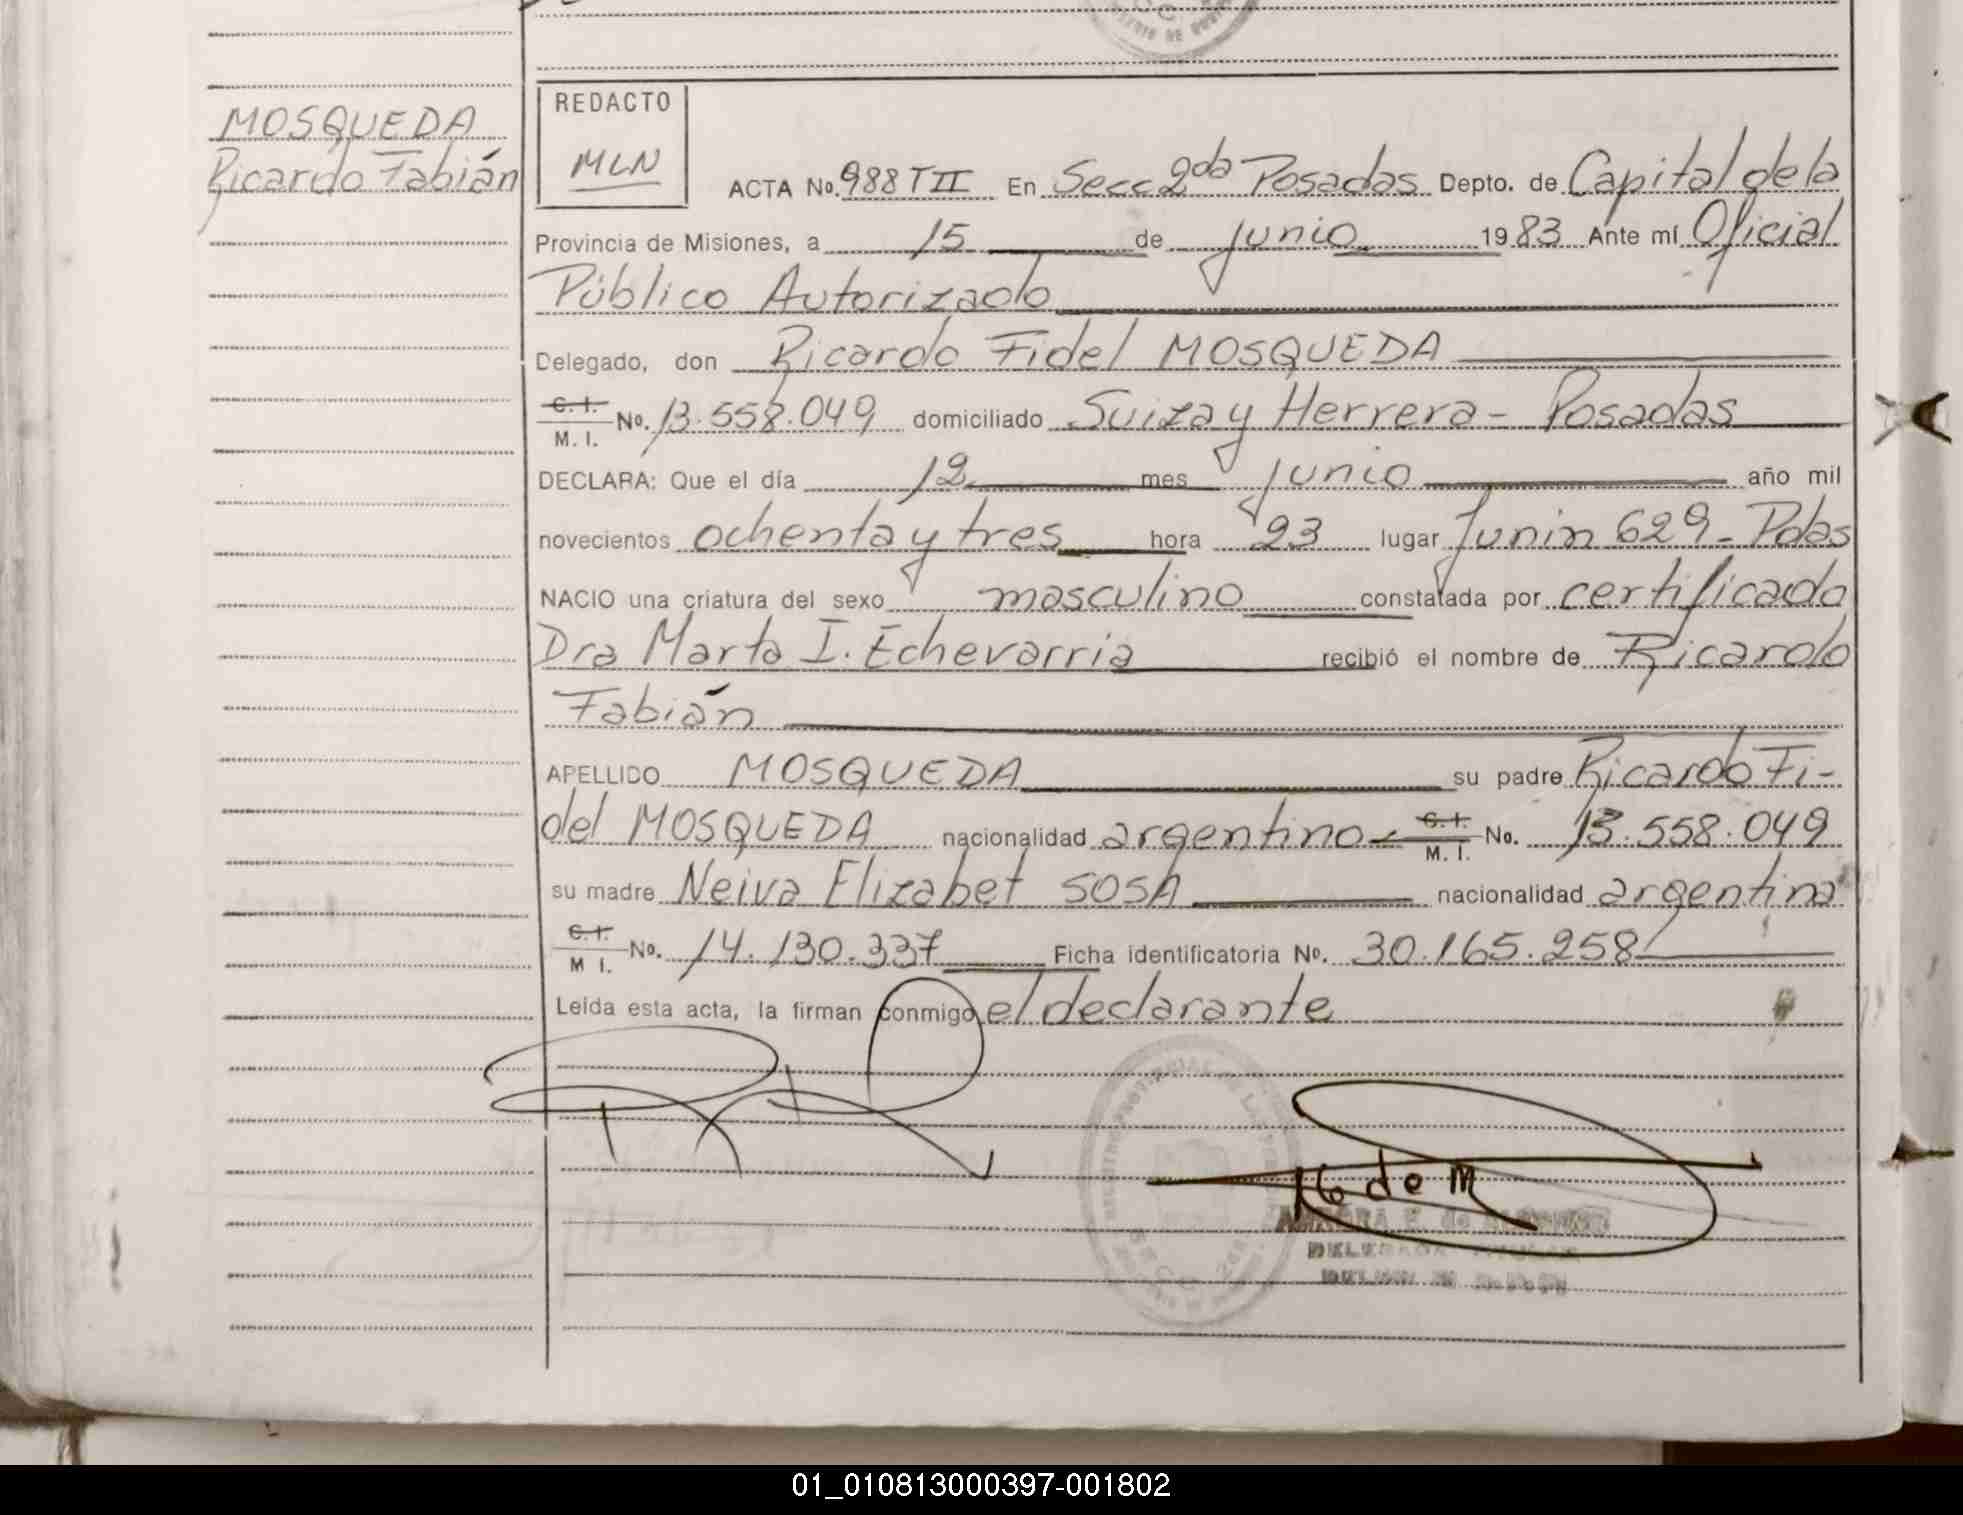 MOSQUEDA
Ricardo Fabián
REDACTO
MLN
ACTA No. 988 T II En Secc 2da Posadas Depto. de Capital de la
Provincia de Misiones, a 15 de junio 1983 Ante mí Oficial
Público Autorizado
Delegado, don Ricardo Fidel MOSQUEDA
C. I.
M. I. No. 13.558.049 domiciliado Suiza y Herrera - Posadas
DECLARA: Que el día 12 mes junio año mil
novecientos ochenta y tres hora 23 lugar Junin 629 - Pdas
NACIO una criatura del sexo masculino constatada por certificado
Dra Marta I. Echevarria recibió el nombre de Ricardo
Fabián
APELLIDO MOSQUEDA su padre Ricardo Fi-
del MOSQUEDA nacionalidad argentino C. I.
M. I. No. 13.558.049
su madre Neiva Elizabet SOSA nacionalidad argentina
C. I.
M I. No. 14.130.337 Ficha identificatoria No. 30.165.258
Leída esta acta, la firman conmigo el declarante
de M
01_010813000397-001802